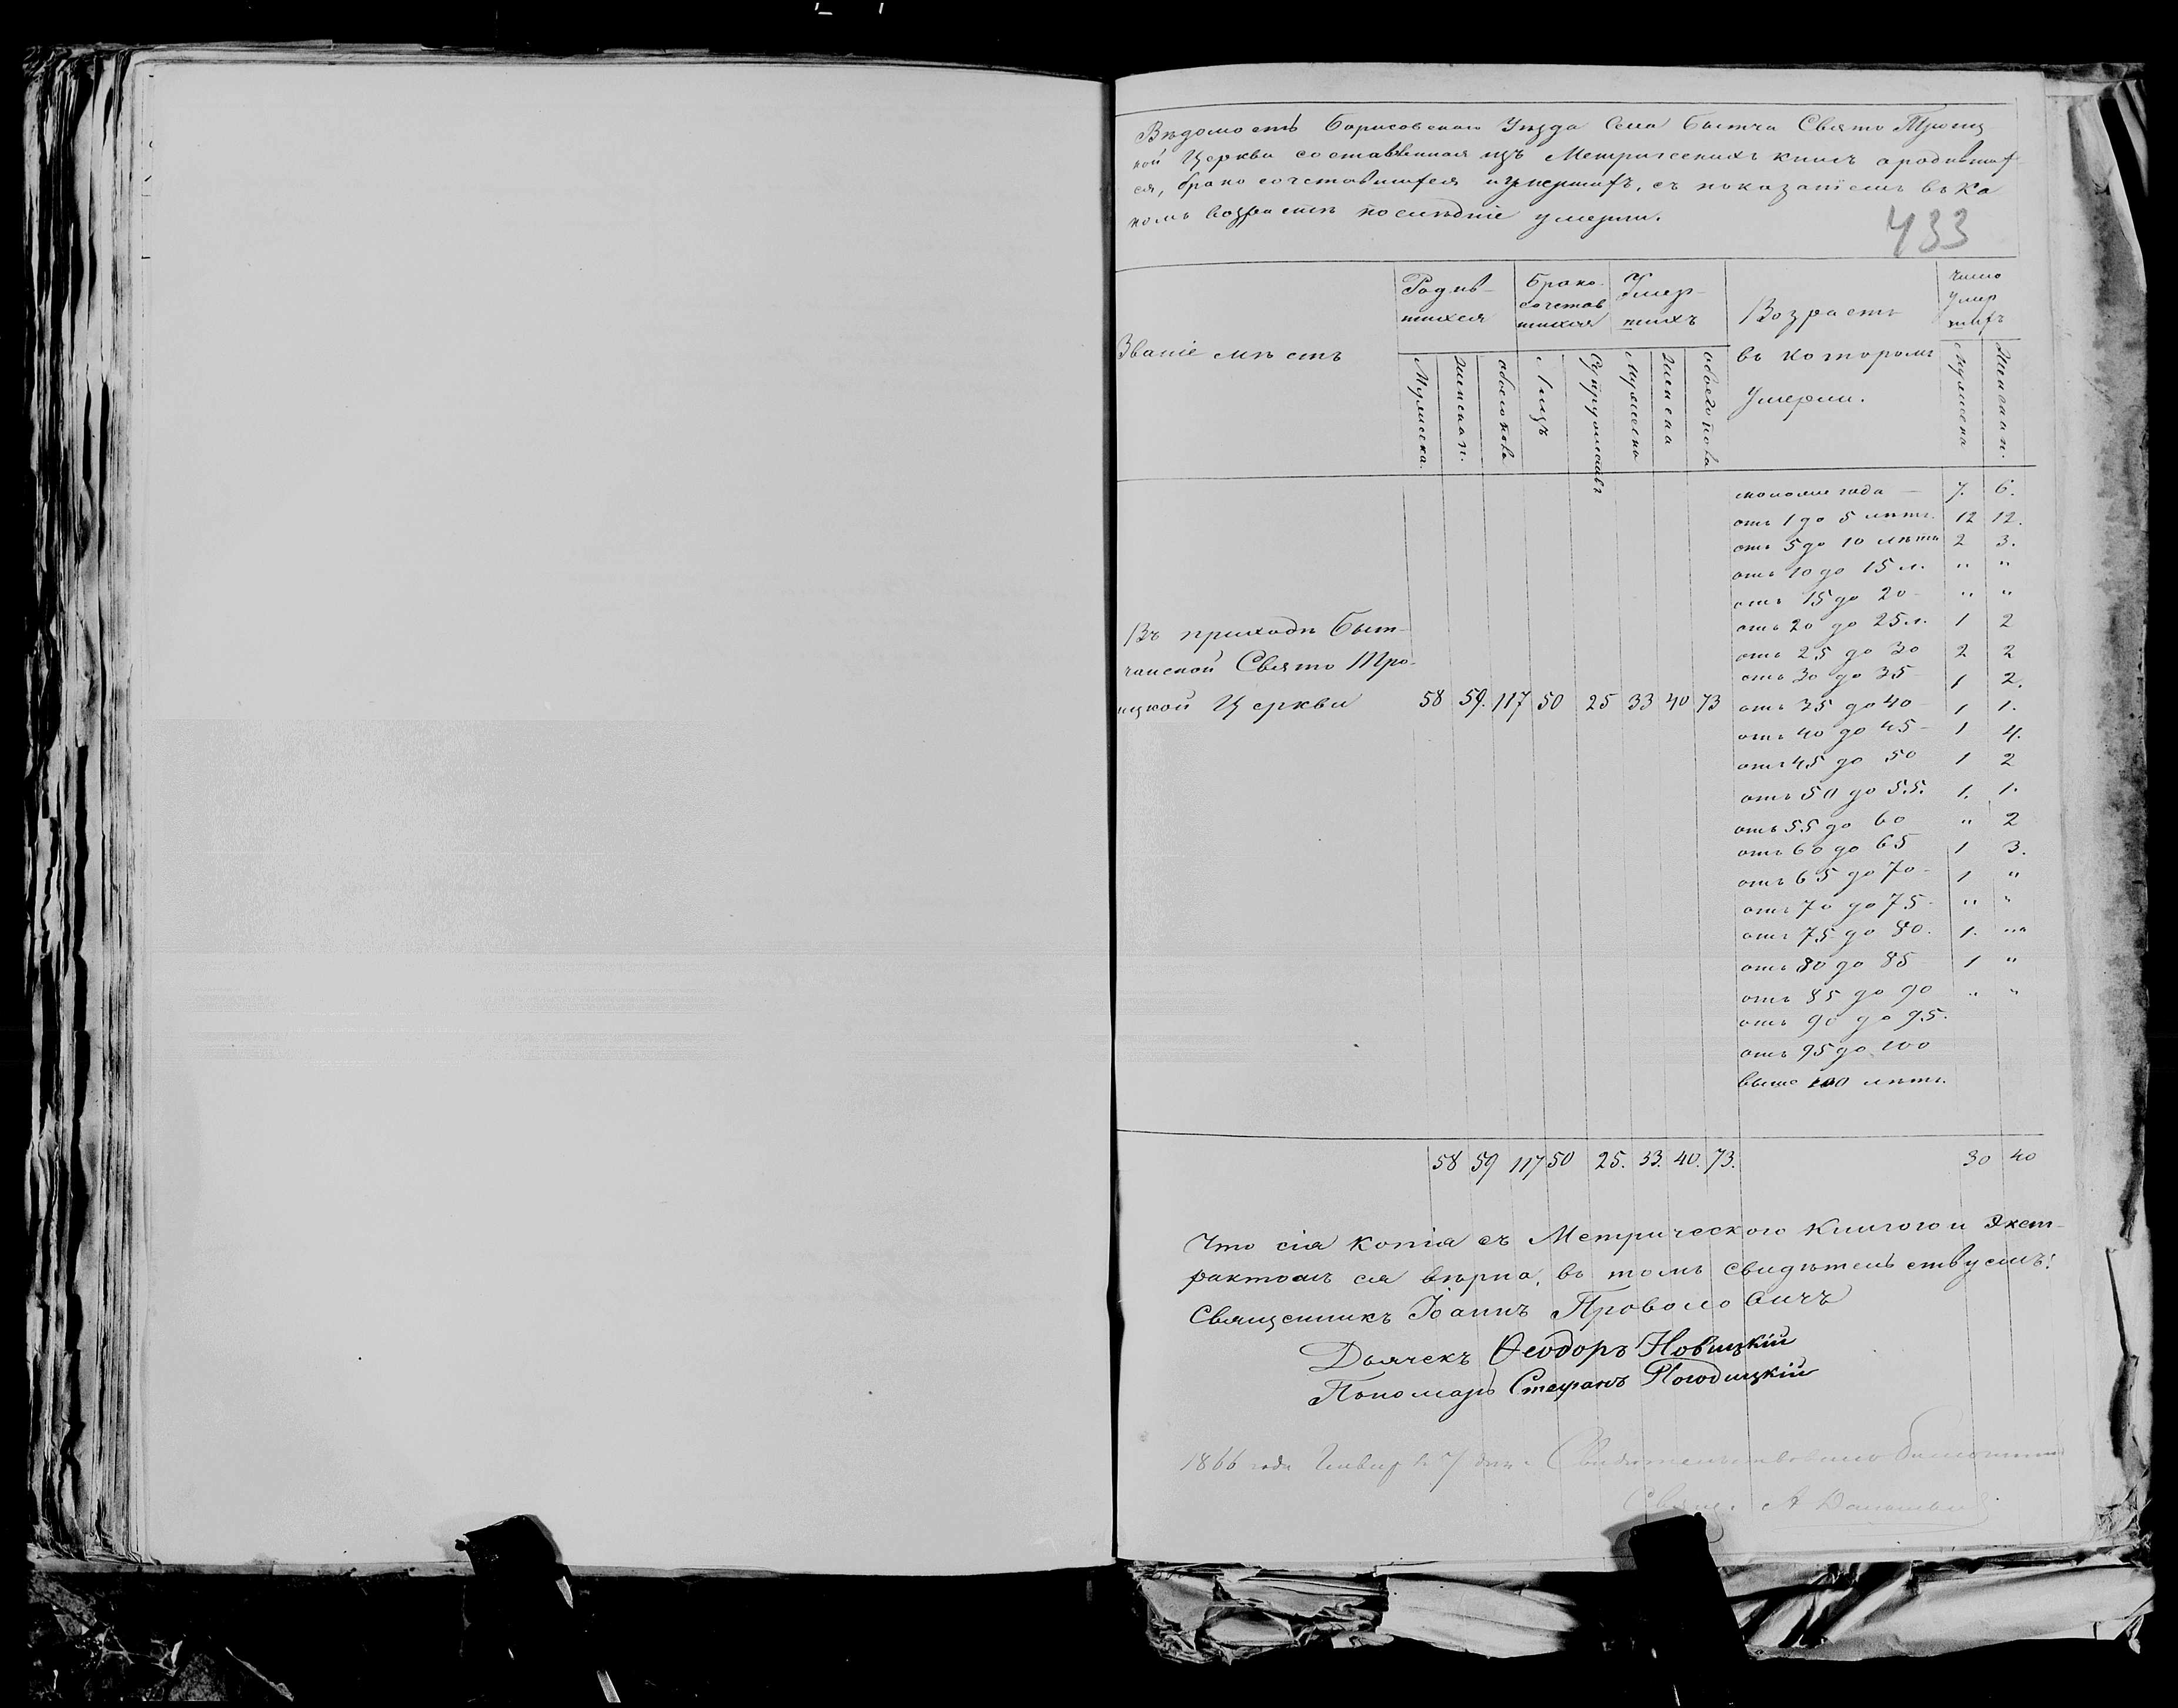 Вѣдомость Борисовскаго Уѣзда Села Бытча Свято Троиц
кой Церкви составленная изъ Метрическихъ книгъ о родившихъ
ся, бракосочетавшихся и умершихъ, съ показаніемъ въ ка
комъ возрастѣ послѣдніе умерли.
433
Званіе мѣстъ
Родив-
шихся
Брако-
сочетав
шихся
Умер-
шихъ
Возрастъ
въ которомъ
Умерли.
Число
Умер
шихъ
Мужеска.
Женскаго п.
обоего пола
Лицъ
Супружествъ
Мужеска
Женска
обоего пола
Мужеска
Женскаго п.
Въ приходѣ Быт-
чанской Свято Тро-
ицкой Церкви 58 59. 117 50 25 33 40 73
моложе года — 7. 6.
отъ 1 до 5 лѣтъ. 12 12.
отъ 5 до 10 лѣтъ 2 3.
отъ 10 до 15 л. " "
отъ 15 до 20 - " "
отъ 20 до 25 л. 1 2
отъ 25 до 30 2 2
отъ 30 до 35 - 1 2.
отъ 35 до 40 - 1 1.
отъ 40 до 45 - 1 4.
отъ 45 до 50 1 2
отъ 50 до 55. 1. 1.
отъ 55 до 60 " 2
отъ 60 до 65 1 3.
отъ 65 до 70 - 1 "
отъ 70 до 75 - " "
отъ 75 до 80. 1. "
отъ 80 до 85 1 "
отъ 85 до 90 " "
отъ 90 до 95.
отъ 95 до 100
выше 100 лѣтъ.
58 59 117 50 25. 33. 40. 73. 30 40
Что сія копія съ Метрическою Книгою и Экст-
рактомъ ея вѣрна, въ томъ свидѣтельствуемъ:
Священникъ Іоаннъ Проволовичъ
Дьячекъ Ѳеодоръ Новицкій
Пономарь Стефанъ Погодицкій
1866 года Генвар 7 дня Свидѣтельствовалъ
Свящ. А